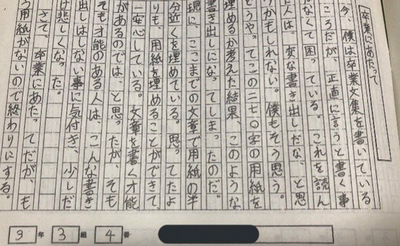 卒業にあたって
今、僕は卒業文集を書いている
ころだが、正直に言うと書く事
なくて困っている。これを読ん
人は、変な書き出しだな、と思
かもしれない。僕もそう思う。
どうやってこの二七〇字の用紙を
埋めるか考えた結果、このような
書き出しになってしまったのだ。
現に、ここまでの文章で用紙の半
分近くを埋めている。思ってたよ
りも、用紙を埋めることができて
安心している。文章を書く才能
があるのでは、と思ったが、そも
そも才能のある人は、こんな書き
出しはしない事に気付き、少しだ
け悲しくなった。
さて、卒業にあたってだが、も
う用紙がないので終わりにする。
3年3組4番